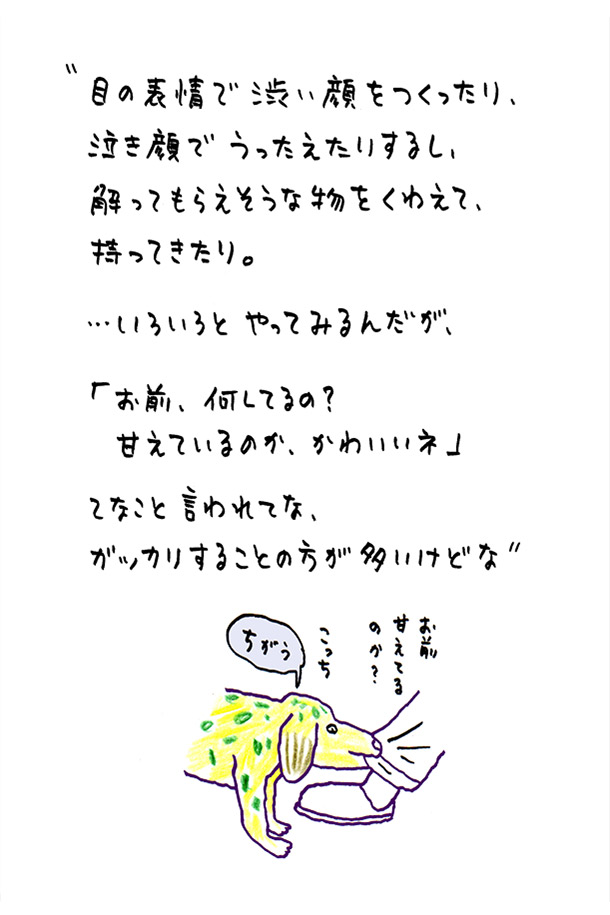 〝目の表情で 渋い顔をつくったり、
泣き顔で うったえたりするし、
解ってもらえそうな物をくわえて、
持ってきたり。
…いろいろと やってみるんだが、
「お前、何してるの?
甘えているのか、かわいいネ」
てなこと 言われてな、
ガッカリすることの方が 多いけどな〟
お前
甘えてる
のか?
こっち
ちがう